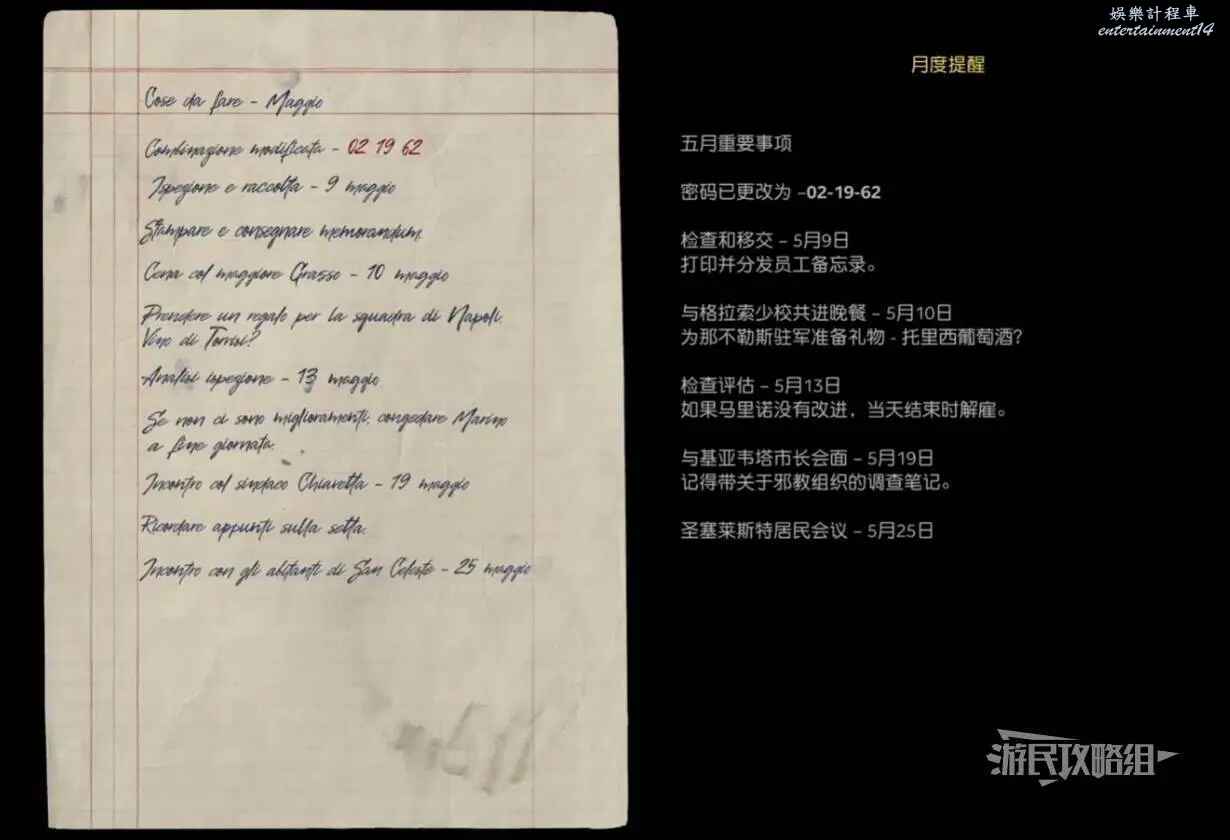 娛樂計程車
entertainment14
Cose da fare - Maggio
Combinazione modificata - 02 19 62
Ispezione e raccolta - 9 maggio
Stampare e consegnare memorandum.
Cena col maggiore Grasso - 10 maggio
Prendere un regalo per la squadra di Napoli.
Vino di Torrisi?
Analisi ispezione - 13 maggio
Se non ci sono miglioramenti, congedare Marino
a fine giornata.
Incontro col sindaco Chiavetta - 19 maggio
Ricordare appunti sulla setta.
Incontro con gli abitanti di San Celeste - 25 maggio
月度提醒
五月重要事项
密码已更改为 -02-19-62
检查和移交 - 5月9日
打印并分发员工备忘录。
与格拉索少校共进晚餐 - 5月10日
为那不勒斯驻军准备礼物 - 托里西葡萄酒?
检查评估 - 5月13日
如果马里诺没有改进，当天结束时解雇。
与基亚韦塔市长会面 - 5月19日
记得带关于邪教组织的调查笔记。
圣塞莱斯特居民会议 - 5月25日
游民攻略组